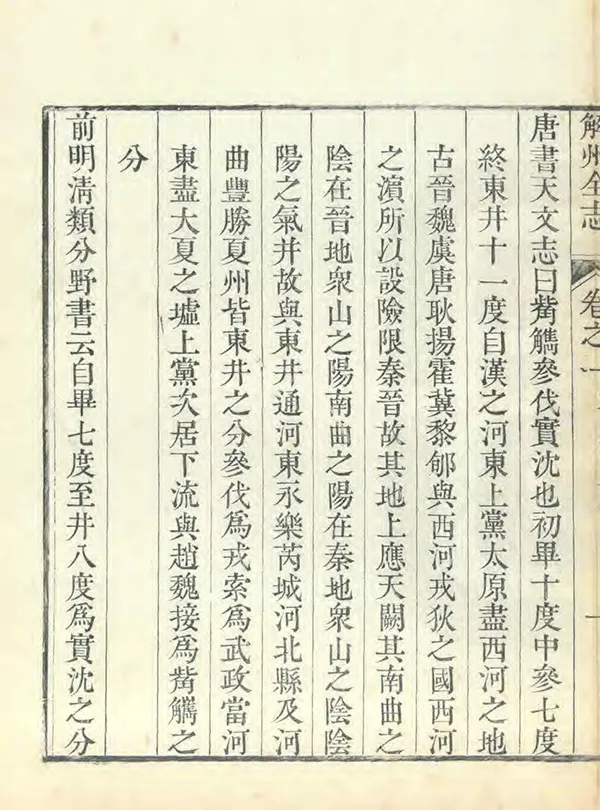 解州全志 卷之一 一
唐書天文志曰觜觿參伐實沈也初畢十度中參七度
終東井十一度自漢之河東上黨太原盡西河之地
古晉魏虞唐耿揚霍冀黎郇與西河戎狄之國西河
之濱所以設險限秦晉故其地上應天闕其南曲之
陰在晉地衆山之陽南曲之陽在秦地衆山之陰陰
陽之氣幷故與東井通河東永樂芮城河北縣及河
曲豐勝夏州皆東井之分參伐爲戎索爲武政當河
東盡大夏之墟上黨次居下流與趙魏接爲觜觿之
分
前明淸類分野書云自畢七度至井八度爲實沈之分